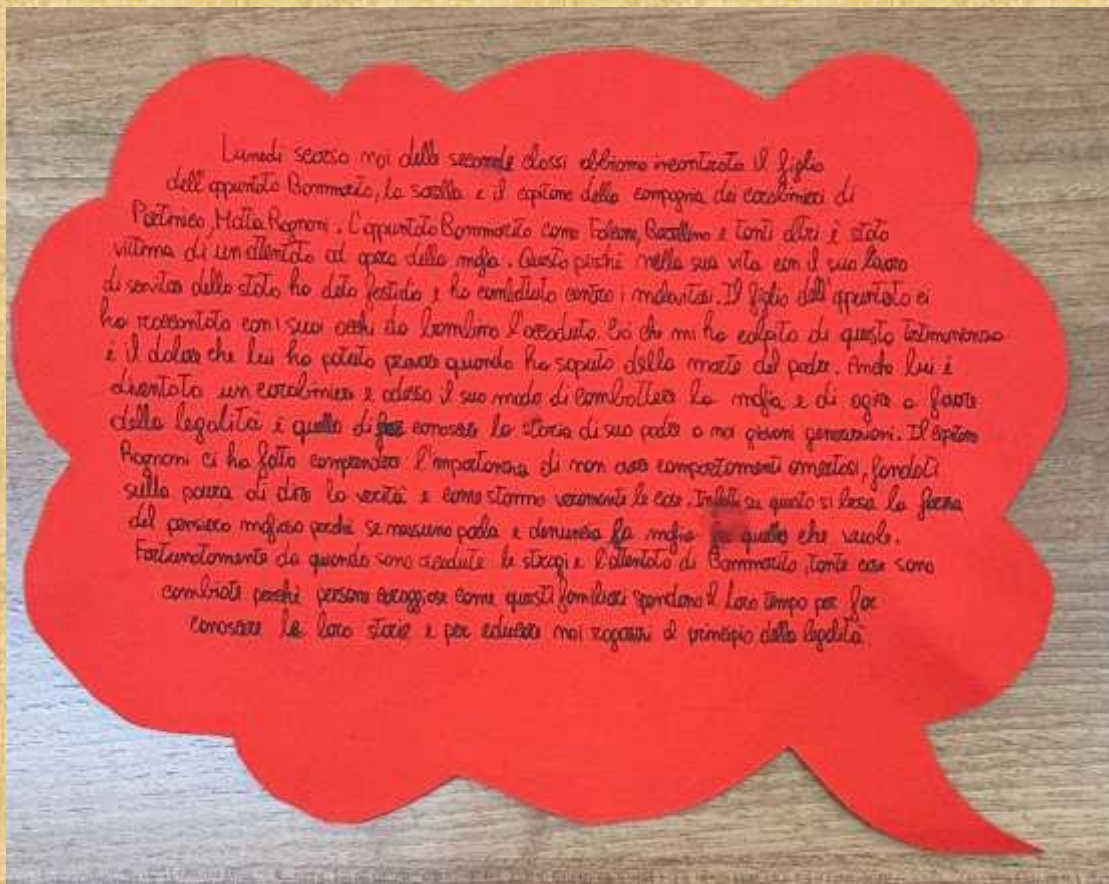 Lunedì scorso noi delle seconde classi abbiamo incontrato il figlio
dell'appuntato Bommarito, la sorella e il capitano della compagnia dei carabinieri di
Partinico, Mattia Rognoni. L'appuntato Bommarito come Falcone, Borsellino e tanti altri è stato
vittima di un attentato ad opera della mafia. Questo perchè nella sua vita con il suo lavoro
di servitore dello stato ha dato fastidio e ha combattuto contro i malavitosi. Il figlio dell'appuntato ci
ha raccontato con i suoi occhi da bambino l'accaduto. Ciò che mi ha colpito di questa testimonianza
è il dolore che lui ha potuto provare quando ha saputo della morte del padre. Anche lui è
diventato un carabiniere e adesso il suo modo di combattere la mafia e di agire a favore
della legalità è quello di far conoscere la storia di suo padre a noi giovani generazioni. Il capitano
Rognoni ci ha fatto comprendere l'importanza di non avere comportamenti omertosi, fondati
sulla paura di dire la verità e come stanno veramente le cose. Infatti su questo si basa la forza
del pensiero mafioso perchè se nessuno parla e denuncia la mafia quello che vuole.
Fortunatamente da quando sono accadute le stragi e l'attentato di Bommarito, tante cose sono
cambiate perchè persone coraggiose come questi familiari spendono il loro tempo per far
conoscere le loro storie e per educare noi ragazzi al principio della legalità.